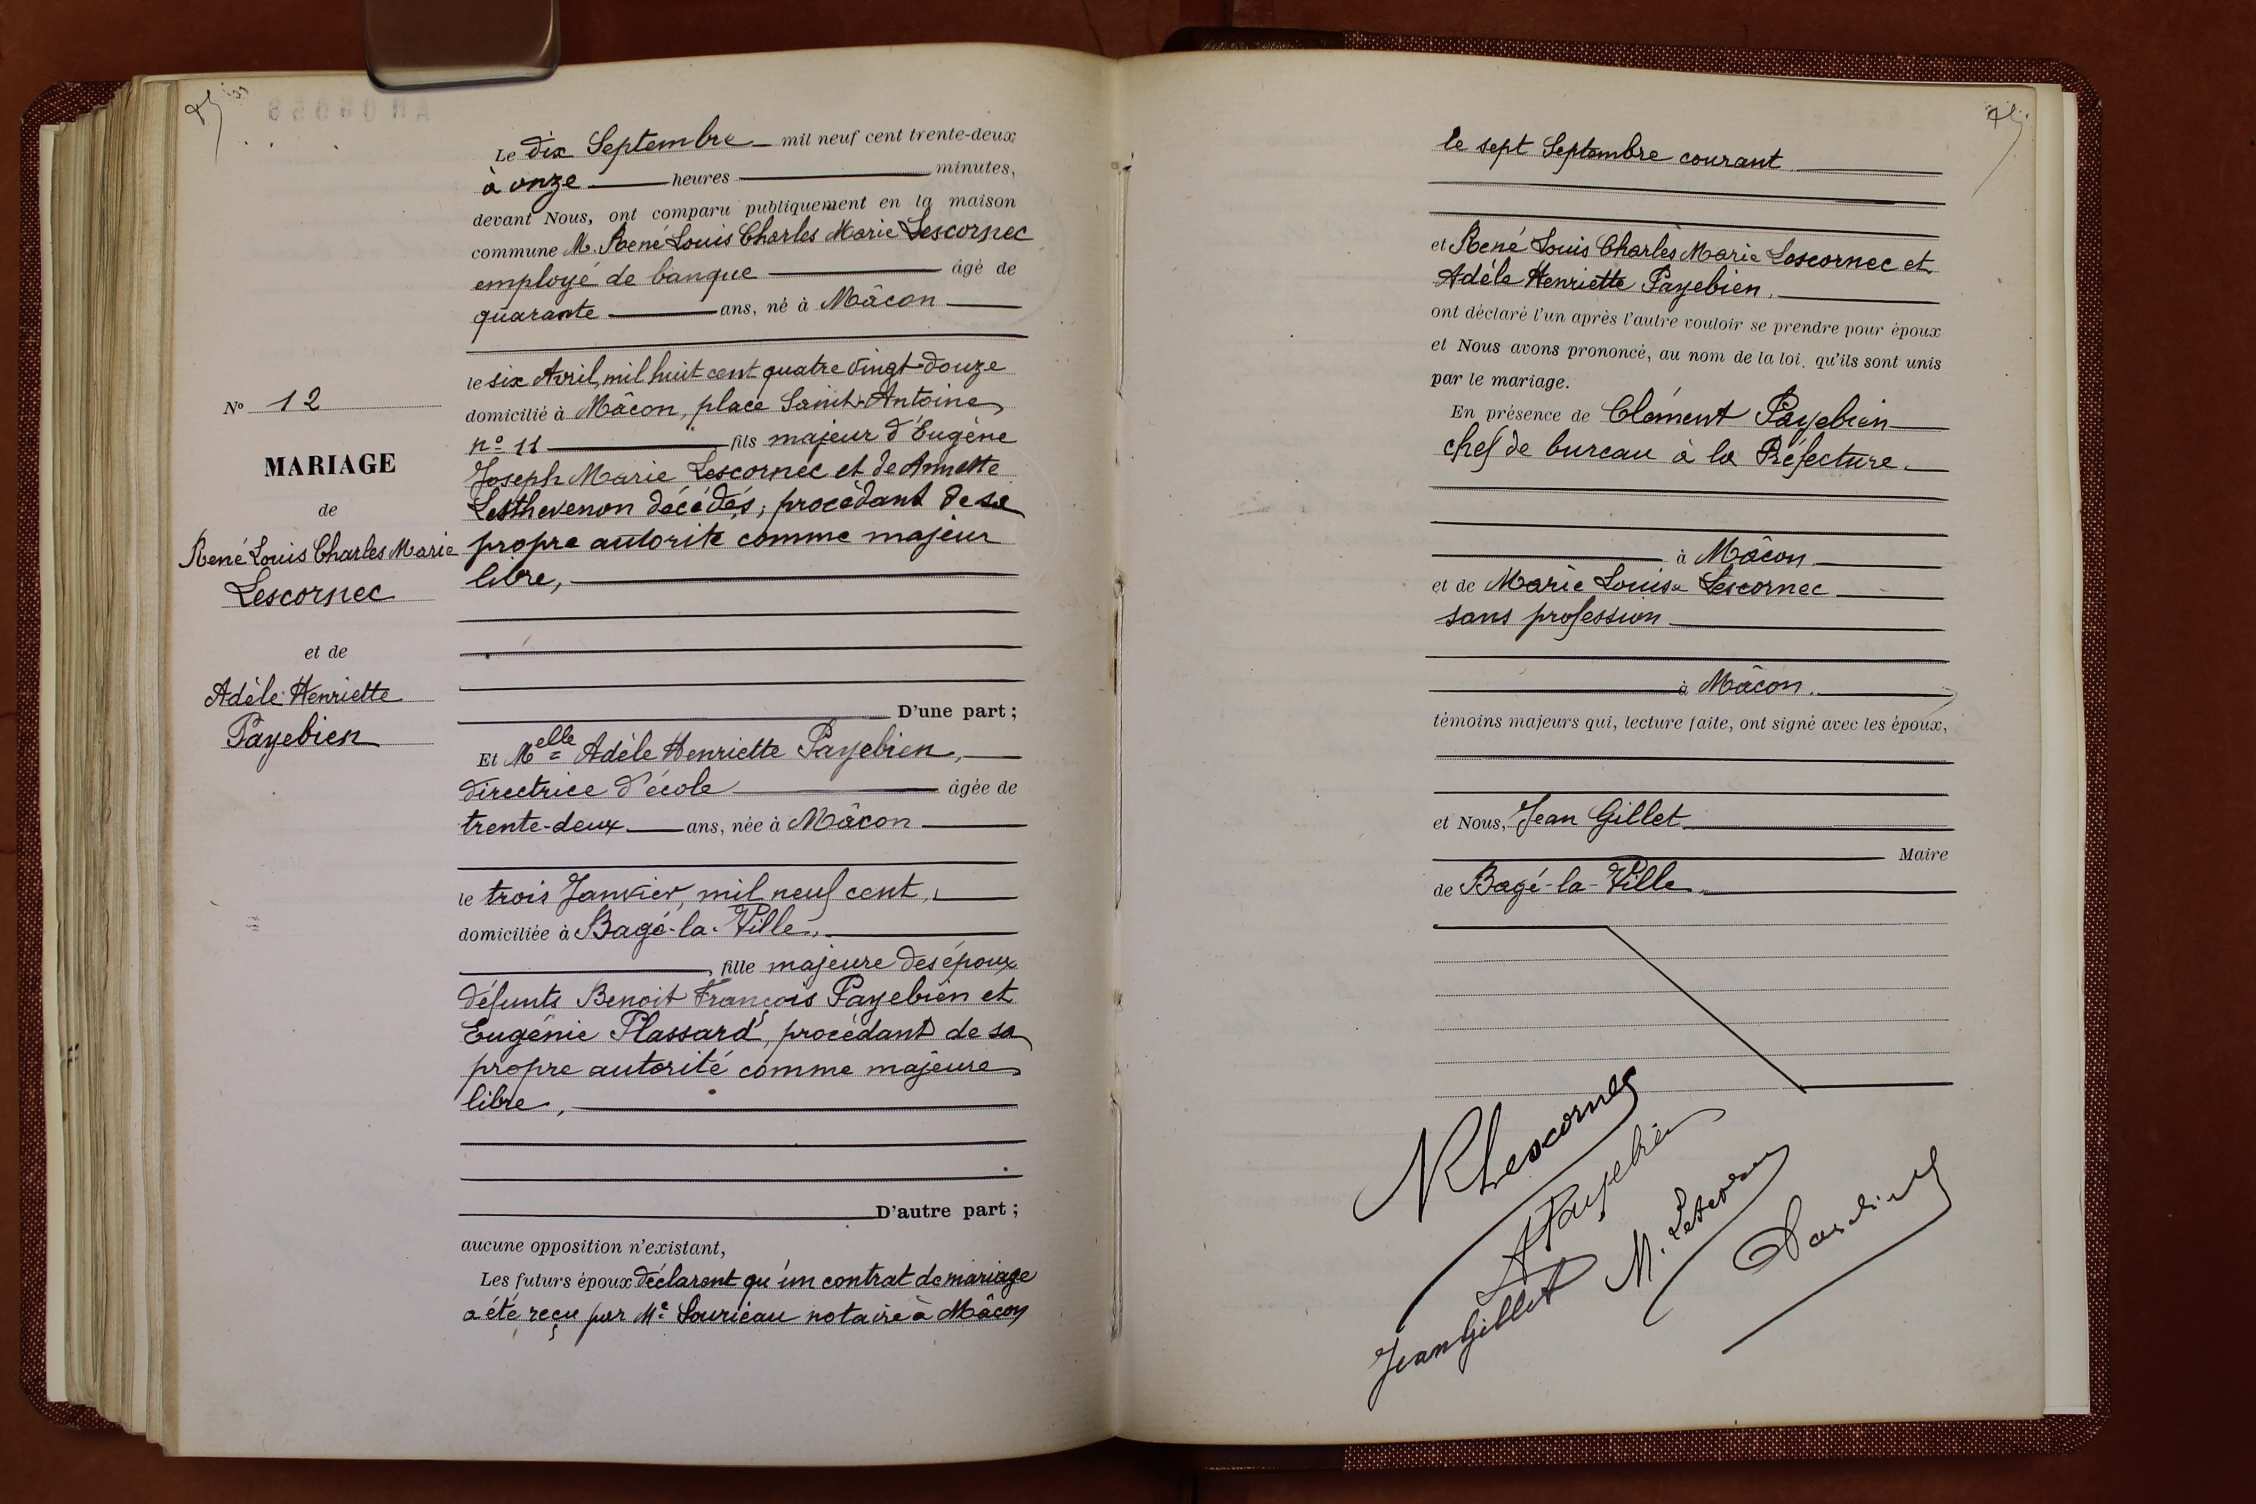 Le dix Septembre mil neuf cent trente-deux
à onze heures minutes,
devant Nous, ont comparu publiquement en la maison
commune M. René Louis Charles Marie Lescornec
employé de banque âgé de
quarante ans, né à Mâcon
le six Avril, mil huit cent quatre vingt-douze
domicilié à Mâcon, place Saint-Antoine
nº 11 fils majeur d'Eugène
Joseph Marie Lescornec et de Annette
Lesthevenon décédés, procédant de sa
propre autorité comme majeur
libre,
D'une part ;
Et Melle Adèle Henriette Payebien,
directrice d'école âgée de
trente-deux ans, née à Mâcon
le trois Janvier, mil neuf cent,
domiciliée à Bagé-la-Ville,
fille majeure des époux
défunts Benoit François Payebien et
Eugénie Plassard, procédant de sa
propre autorité comme majeure
libre,
D'autre part ;
aucune opposition n'existant,
Les futurs époux déclarent qu'un contrat de mariage
a été reçu par Me Souricau notaire à Mâcon
Nº 12
MARIAGE
de
René Louis Charles Marie
Lescornec
et de
Adèle Henriette
Payebien
le sept Septembre courant
et René Louis Charles Marie Lescornec et
Adèle Henriette Payebien,
ont déclaré l'un après l'autre vouloir se prendre pour époux
et Nous avons prononcé, au nom de la loi, qu'ils sont unis
par le mariage.
En présence de Clément Payebien
chef de bureau à la Préfecture
à Mâcon
et de Marie Louise Lescornec
sans profession
à Mâcon.
témoins majeurs qui, lecture faite, ont signé avec les époux,
et Nous, Jean Gillet
Maire
de Bagé-la-Ville
RLescornec
APayebien
M. Lescornec
Jean Gillet